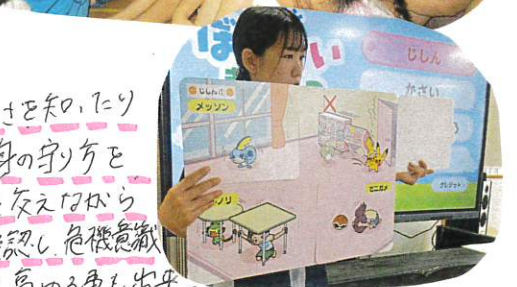 さを知ったり
身の守り方を
交えながら
認し、危機意識
高める事も出来
ぼ
い
じしん
かさい
じしん
メッソン
ノリ
ゼニガメ
クレジット